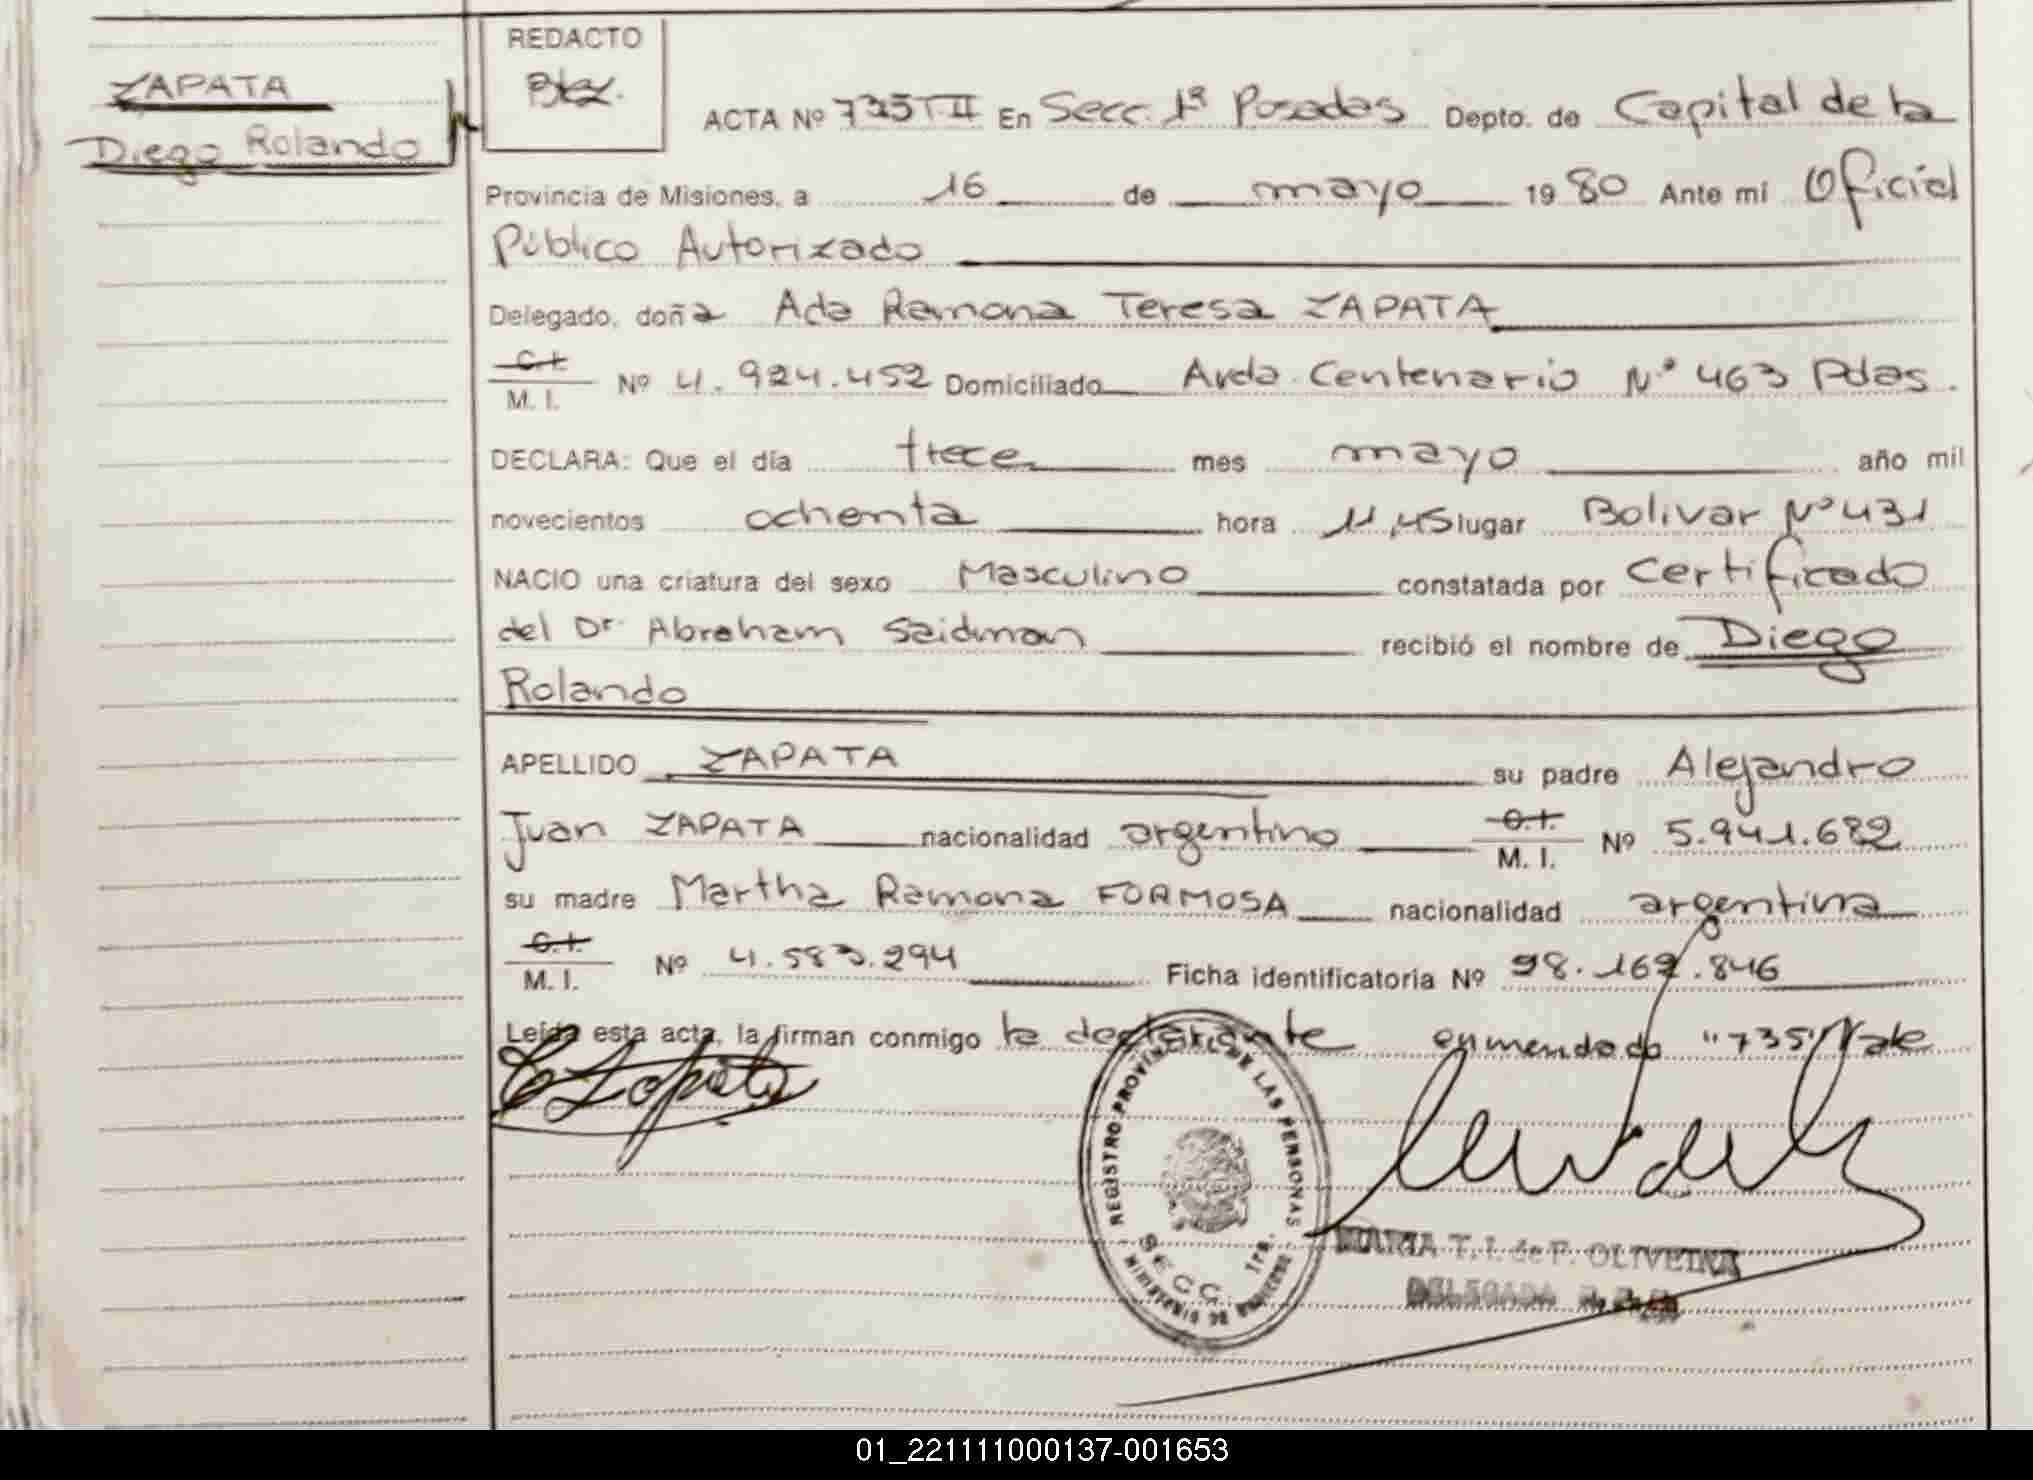 ZAPATA
Diego Rolando
REDACTO
ACTA Nº 735 T II En Secc. 1ª Posadas Depto. de Capital de la
Provincia de Misiones, a 16 de mayo 1980 Ante mi Oficial
Público Autorizado
Delegado, doña Ada Ramona Teresa ZAPATA
C.I.
M. I. Nº 4.924.452 Domiciliado Avda. Centenario Nº 463 Pdas.
DECLARA: Que el día trece mes mayo año mil
novecientos ochenta hora 11,45 lugar Bolivar Nº 431
NACIO una criatura del sexo Masculino constatada por Certificado
del Dr. Abraham Saidman recibió el nombre de Diego
Rolando
APELLIDO ZAPATA su padre Alejandro
Juan ZAPATA nacionalidad argentino C.I. M. I. Nº 5.941.682
su madre Martha Ramona FORMOSA nacionalidad argentina
C.I.
M. I. Nº 4.583.294 Ficha identificatoria Nº 98.162.846
Leída esta acta, la firman conmigo la declarante enmendado "735" Vale
REGISTRO PROVINCIAL DE LAS PERSONAS
SECC. 1ra.
MINISTERIO DE GOBIERNO
MARIA T. I. de F. OLIVEIRA
DELEGADA R. P. P.
01_221111000137-001653